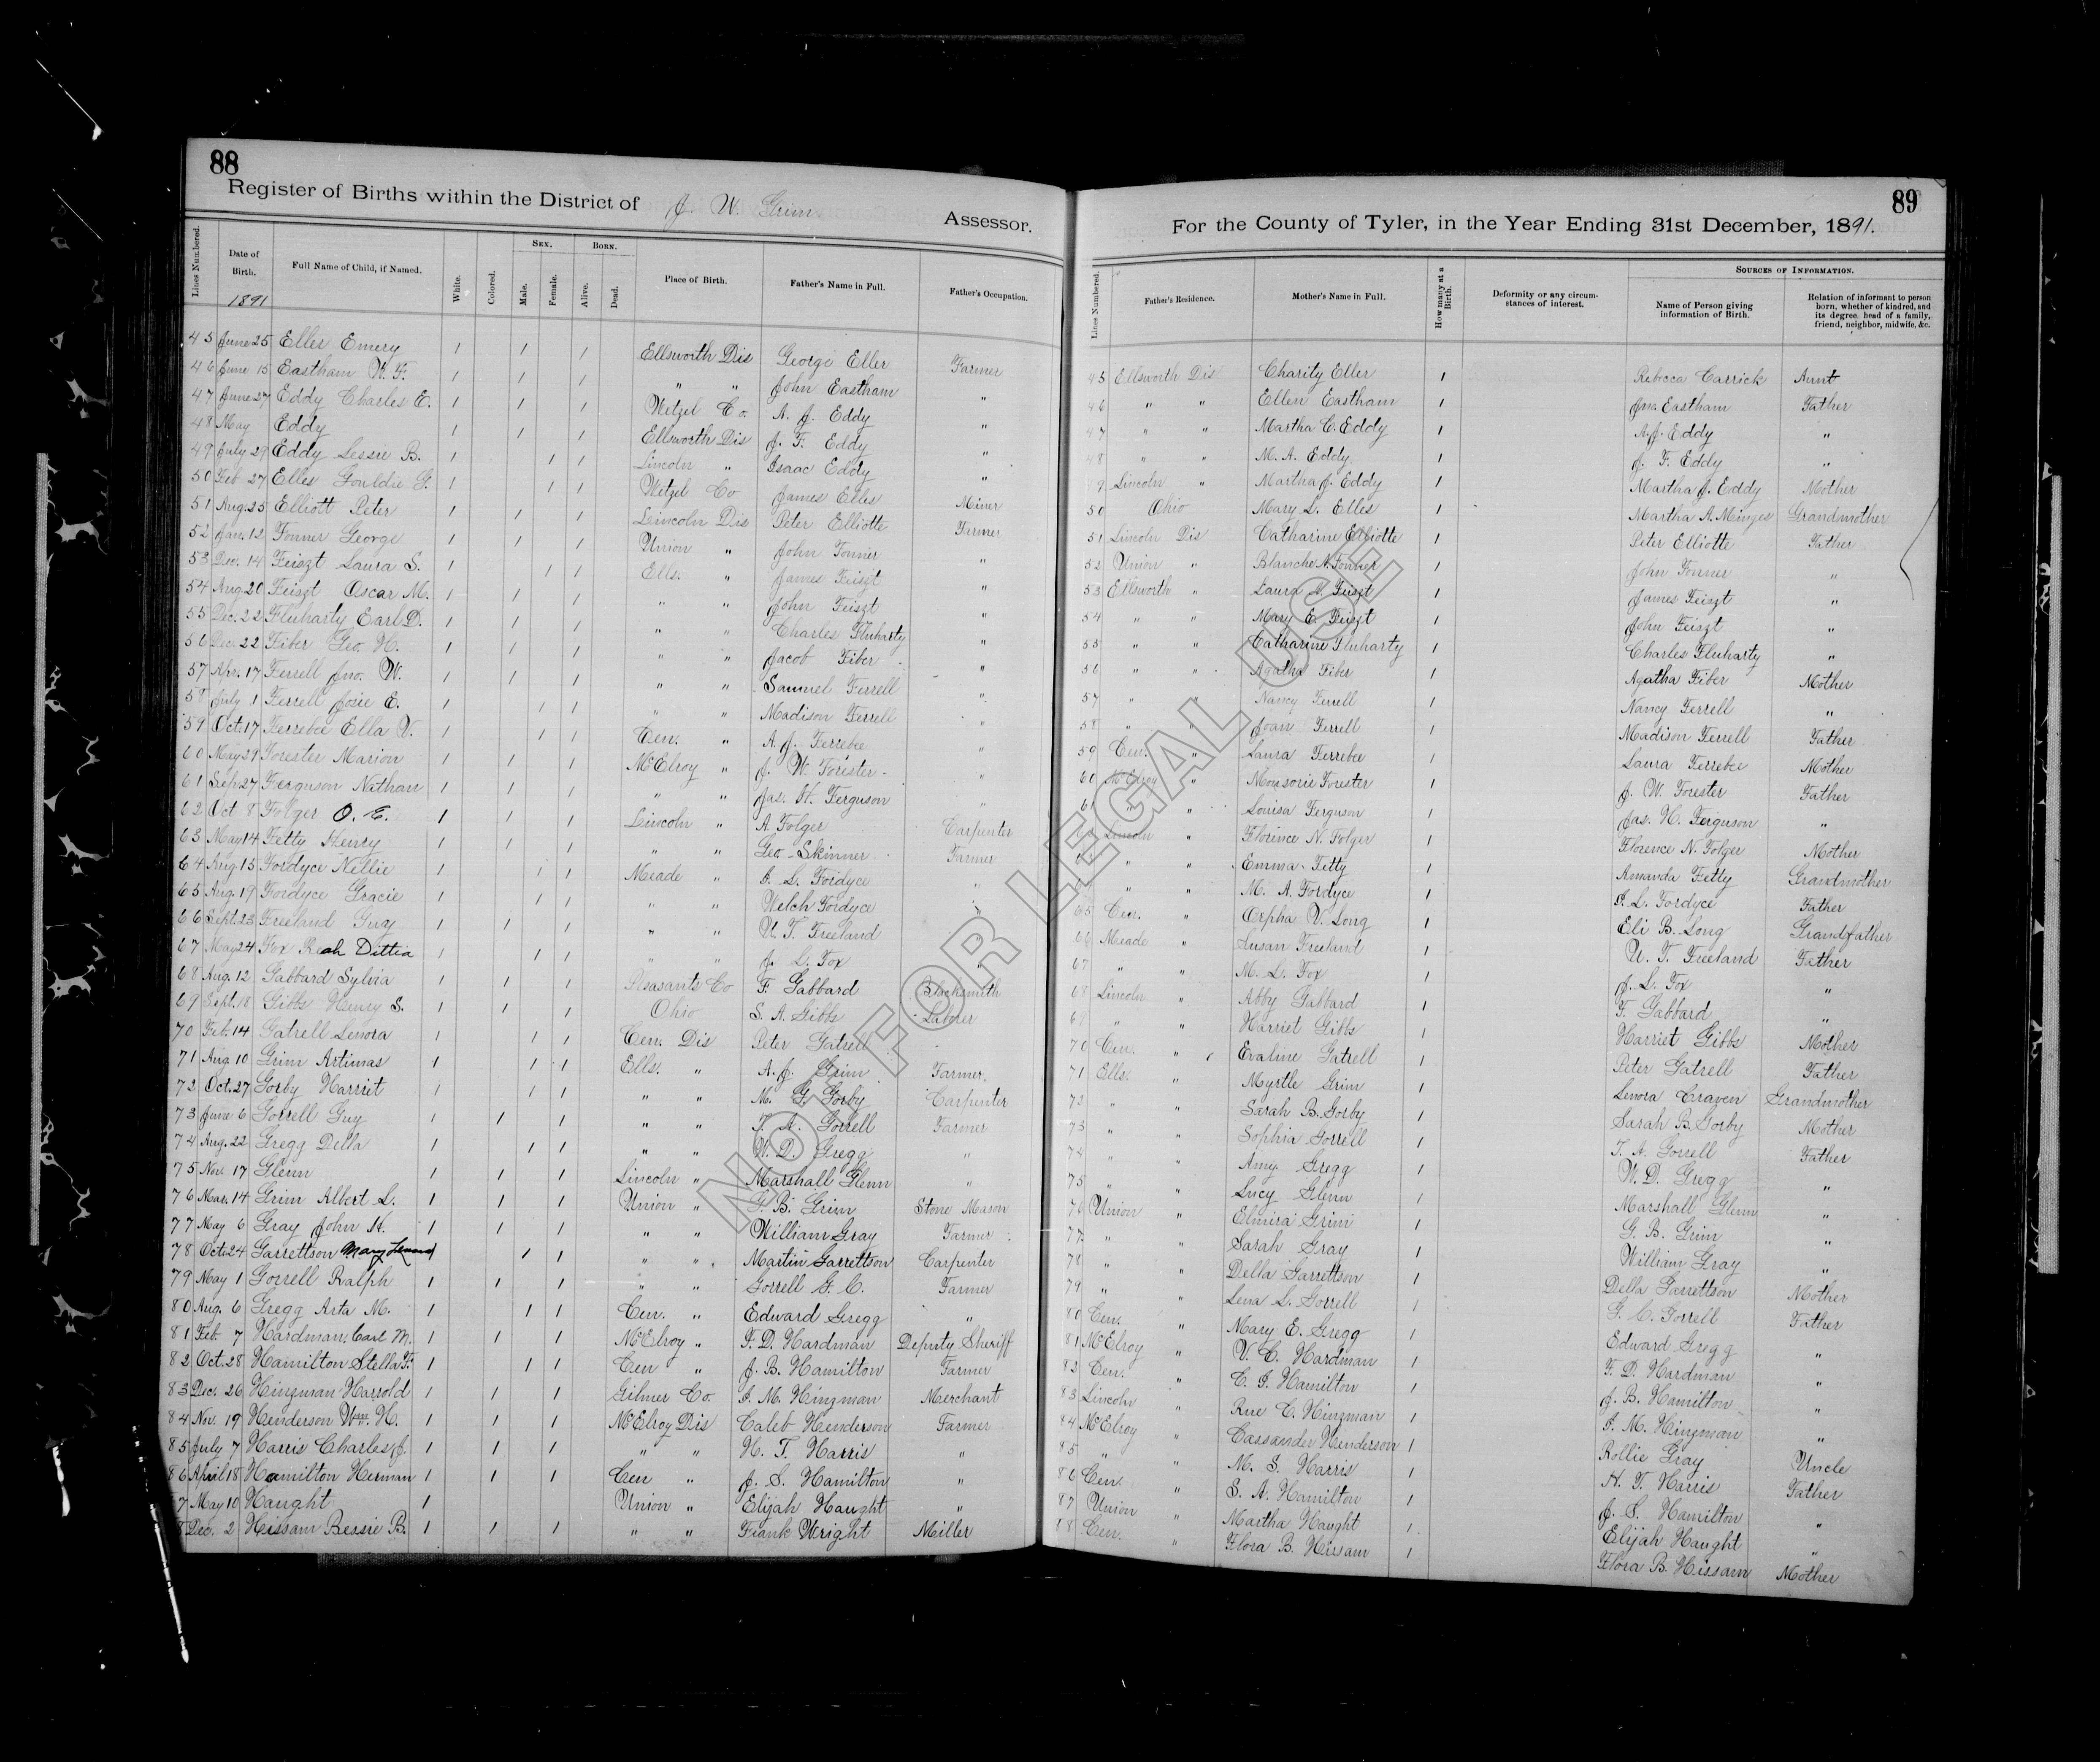 88
Register of Births within the District of J. W. Grim Assessor.
Lines Numbered. Date of Birth. Full Name of Child, if Named. White. Colored. Sex. Male. Female. Born. Alive. Dead. Place of Birth. Father's Name in Full. Father's Occupation.
1891
45 June 25 Eller Emery 1 1 1 Ellsworth Dis George Eller Farmer
46 June 15 Eastham W. F. 1 1 1 " " John Eastham "
47 June 27 Eddy Charles E. 1 1 1 Wetzel Co. A. J. Eddy "
48 May Eddy 1 1 1 Ellsworth Dis J. F. Eddy "
49 July 29 Eddy Lessie B. 1 1 1 Lincoln " Isaac Eddy "
50 Feb 27 Elles Gouldie G. 1 1 1 Wetzel Co James Elles Miner
51 Aug. 25 Elliott Peter 1 1 1 Lincoln Dis Peter Elliotte Farmer
52 Jan. 12 Fonner George 1 1 1 Union " John Fonner "
53 Dec. 14 Feiszt Laura S. 1 1 1 Ells. " James Feiszt "
54 Aug 20 Feiszt Oscar M. 1 1 1 " " John Feiszt "
55 Dec. 22 Fluharty Earl D. 1 1 1 " " Charles Fluharty "
56 Dec. 22 Fiber Geo. H. 1 1 1 " " Jacob Fiber "
57 Apr. 17 Ferrell Jno. W. 1 1 1 " " Samuel Ferrell "
58 July 1 Ferrell Josie E. 1 1 1 " " Madison Ferrell "
59 Oct. 17 Ferrebee Ella V. 1 1 1 Cen. " A. J. Ferrebee "
60 May 29 Forester Marion 1 1 1 McElroy " J. W. Forester "
61 Sept 27 Ferguson Nathan 1 1 1 " " Jas. H. Ferguson "
62 Oct 8 Folger O. E. 1 1 1 Lincoln " A. Folger Carpenter
63 May 14 Fetty Henry 1 1 1 " " Geo Skinner Farmer
64 Aug 15 Fordyce Nellie 1 1 1 Meade " I. L. Fordyce "
65 Aug. 19 Fordyce Gracie 1 1 1 " " Welch Fordyce "
66 Sept. 23 Freeland Guy 1 1 1 " " U. T. Freeland
67 May 24 Fox Reah Dittia 1 1 1 " " J. L. Fox "
68 Aug. 12 Gabbard Sylvia 1 1 1 Pleasants Co F. Gabbard Blacksmith
69 Sept. 18 Gibbs Henry S. 1 1 1 Ohio S. A. Gibbs Laborer
70 Feb. 14 Gatrell Lenora 1 1 1 Cen. Dis Peter Gatrell
71 Aug. 10 Grim Artimas 1 1 1 Ells. " A. J. Grim Farmer.
72 Oct. 27 Gorby Harriet 1 1 1 " " M. G. Gorby Carpenter
73 June 6 Gorrell Guy 1 1 1 " " T. A. Gorrell Farmer
74 Aug. 22 Gregg Della 1 1 1 " " W. D. Gregg "
75 Nov. 17 Glenn 1 1 1 Lincoln " Marshall Glenn "
76 Mar. 14 Grim Albert L. 1 1 1 Union " G. B. Grim Stone Mason
77 May 6 Gray John H. 1 1 1 " " William Gray Farmer
78 Oct. 24 Garrettson Mary 1 1 1 " " Martin Garrettson Carpenter
79 May 1 Gorrell Ralph 1 1 1 " " Gorrell G. C. Farmer
80 Aug. 6 Gregg Arta M. 1 1 1 Cen. " Edward Gregg "
81 Feb. 7 Hardman, Carl M. 1 1 1 McElroy " F. D. Hardman Deputy Sheriff
82 Oct. 28 Hamilton Stella F. 1 1 1 Cen " J. B. Hamilton Farmer
83 Dec. 26 Hinzman Harrold 1 1 1 Gilmer Co. I. M. Hinzman Merchant
84 Nov. 19 Henderson Wm. H. 1 1 1 McElroy Dis Caleb Henderson Farmer
85 July 7 Harris Charles J. 1 1 1 " " H. T. Harris "
86 April 18 Hamilton Herman 1 1 1 Cen " J. S. Hamilton "
7 May 10 Haught 1 Union " Elijah Haught "
8 Dec. 2 Hissam Bessie B. 1 1 1 " " Frank Wright Miller
89
For the County of Tyler, in the Year Ending 31st December, 1891.
Lines Numbered. Father's Residence. Mother's Name in Full. How many at a Birth. Deformity or any circumstances of interest. Sources of Information. Name of Person giving information of Birth. Relation of informant to person born, whether of kindred, and its degree, head of a family, friend, neighbor, midwife, &c.
45 Ellsworth Dis Charity Eller 1 Rebecca Carrick Aunt
46 " " Ellen Eastham 1 Jno. Eastham Father
47 " " Martha C. Eddy 1 A. J. Eddy "
48 " " M. A. Eddy 1 J. F. Eddy "
49 Lincoln " Martha J. Eddy 1 Martha J. Eddy Mother
50 Ohio Mary L. Elles 1 Martha A. Minges Grandmother
51 Lincoln Dis Catharine Elliotte 1 Peter Elliotte Father
52 Union " Blanche N. Fonner 1 John Fonner "
53 Ellsworth " Laura N. Feiszt 1 James Feiszt "
54 " " Mary E. Feiszt 1 John Feiszt "
55 " " Catharine Fluharty 1 Charles Fluharty "
56 " " Agatha Fiber 1 Agatha Fiber Mother
57 " " Nancy Ferrell 1 Nancy Ferrell "
58 " " Joan Ferrell 1 Madison Ferrell Father
59 Cen. " Laura Ferrebee 1 Laura Ferrebee Mother
60 McElroy " Forester 1 J. W. Forester Father
61 " " Louisa Ferguson 1 Jas. H. Ferguson "
Lincoln " Florence N. Folger 1 Florence N. Folger Mother
" " Emma Fetty 1 Amanda Fetty Grandmother
" " M. A. Fordyce 1 I. L. Fordyce Father
65 Cen. " Orpha V. Long 1 Eli B. Long Grandfather
66 Meade " Susan Freeland 1 U. T. Freeland Father
67 " " M. L. Fox 1 J. L. Fox "
68 Lincoln " Abby Gabbard 1 F. Gabbard "
69 " " Harriet Gibbs 1 Harriet Gibbs Mother
70 Cen. " Evaline Gatrell 1 Peter Gatrell Father
71 Ells. " Myrtle Grim 1 Lenora Craven Grandmother
72 " " Sarah B. Gorby 1 Sarah B. Gorby Mother
73 " " Sophia Gorrell 1 T. A. Gorrell Father
74 " " Amy Gregg 1 W. D. Gregg "
75 " " Lucy Glenn 1 Marshall Glenn "
76 Union " Elmira Grim 1 G. B. Grim "
77 " " Sarah Gray 1 William Gray "
78 " " Della Garrettson 1 Della Garrettson Mother
79 " " Lena L. Gorrell 1 G. C. Gorrell Father
80 Cen. " Mary E. Gregg 1 Edward Gregg "
81 McElroy " V. C. Hardman 1 F. D. Hardman "
82 Cen. " C. I. Hamilton 1 J. B. Hamilton "
83 Lincoln " Rue C. Hinzman 1 I. M. Hinzman "
84 McElroy " Cassander Henderson 1 Rollie Gray Uncle
85 " " M. S. Harris 1 H. T. Harris Father
86 Cen. " S. A. Hamilton 1 J. S. Hamilton "
87 Union " Martha Haught 1 Elijah Haught "
88 Cen. " Flora B. Hissam 1 Flora B. Hissam Mother
NOT FOR LEGAL USE